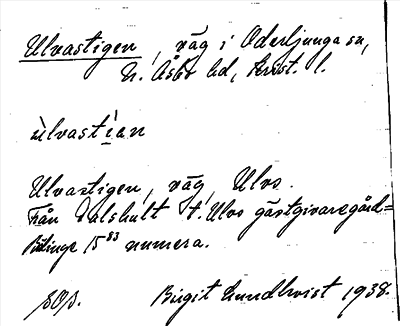 Ulvastigen, väg i Oderljunga sn,
N. Åsbo hd, Krist. l.
ùlvastí̱an
Ulvastigen, väg, Ulvs.
Från Dalshult t. Ulvs gästgivaregård=
15⁸³ numera.
Birgit Lundkvist 1938.